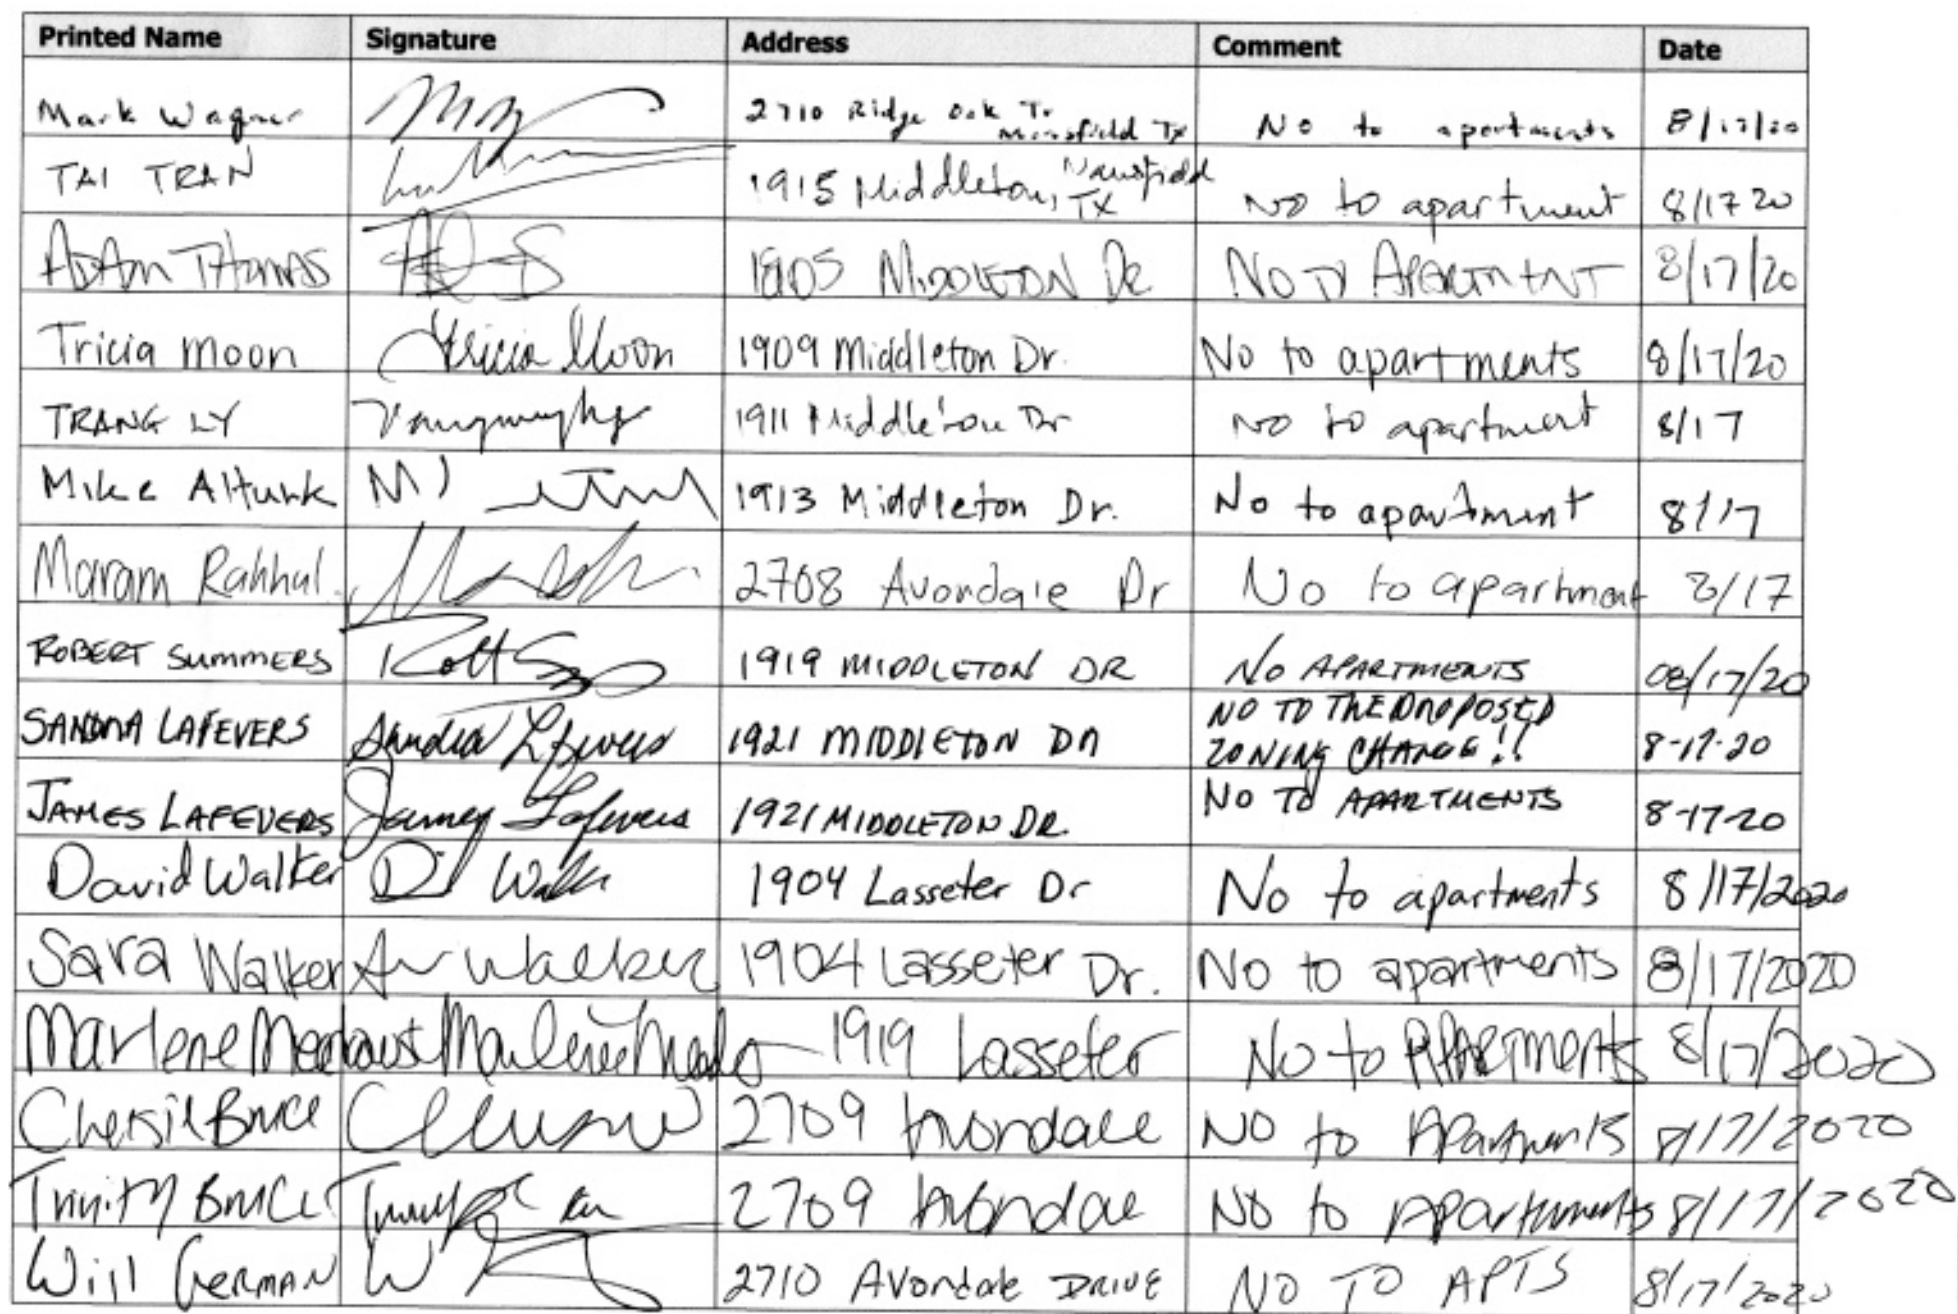 Printed Name Signature Address Comment Date
Mark Wagner 2710 Ridge Oak Tr Mansfield TX No to apartments 8/17/20
TAI TRAN 1915 Middleton, Mansfield TX NO to apartment 8/17 20
ADAM THOMAS 1905 MIDDLETON DR NO TO APARTMENT 8/17/20
Tricia Moon Tricia Moon 1909 Middleton Dr. No to apartments 8/17/20
TRANG LY 1911 Middleton Dr NO to apartment 8/17
Mike Alturk 1913 Middleton Dr. No to apartment 8/17
Maram Rahhal. 2708 Avondale Dr No to apartment 8/17
ROBERT SUMMERS 1919 MIDDLETON DR NO APARTMENTS 08/17/20
SANDRA LAFEVERS Sandra Lafevers 1921 MIDDLETON DR NO TO THE PROPOSED ZONING CHANGE!! 8-17-20
JAMES LAFEVERS James Lafevers 1921 MIDDLETON DR. NO TO APARTMENTS 8-17-20
David Walker D Walker 1904 Lasseter Dr No to apartments 8/17/2020
Sara Walker Walker 1904 Lasseter Dr. No to apartments 8/17/2020
Marlene Marlene 1919 Lasseter No to APARTMENTS 8/17/2020
Bruce 2709 Avondale NO to Apartments 8/17/2020
Trinity Bruce 2709 Avondale NO to Apartments 8/17/2020
Will GERMAN W 2710 Avondale DRIVE NO TO APTS 8/17/2020